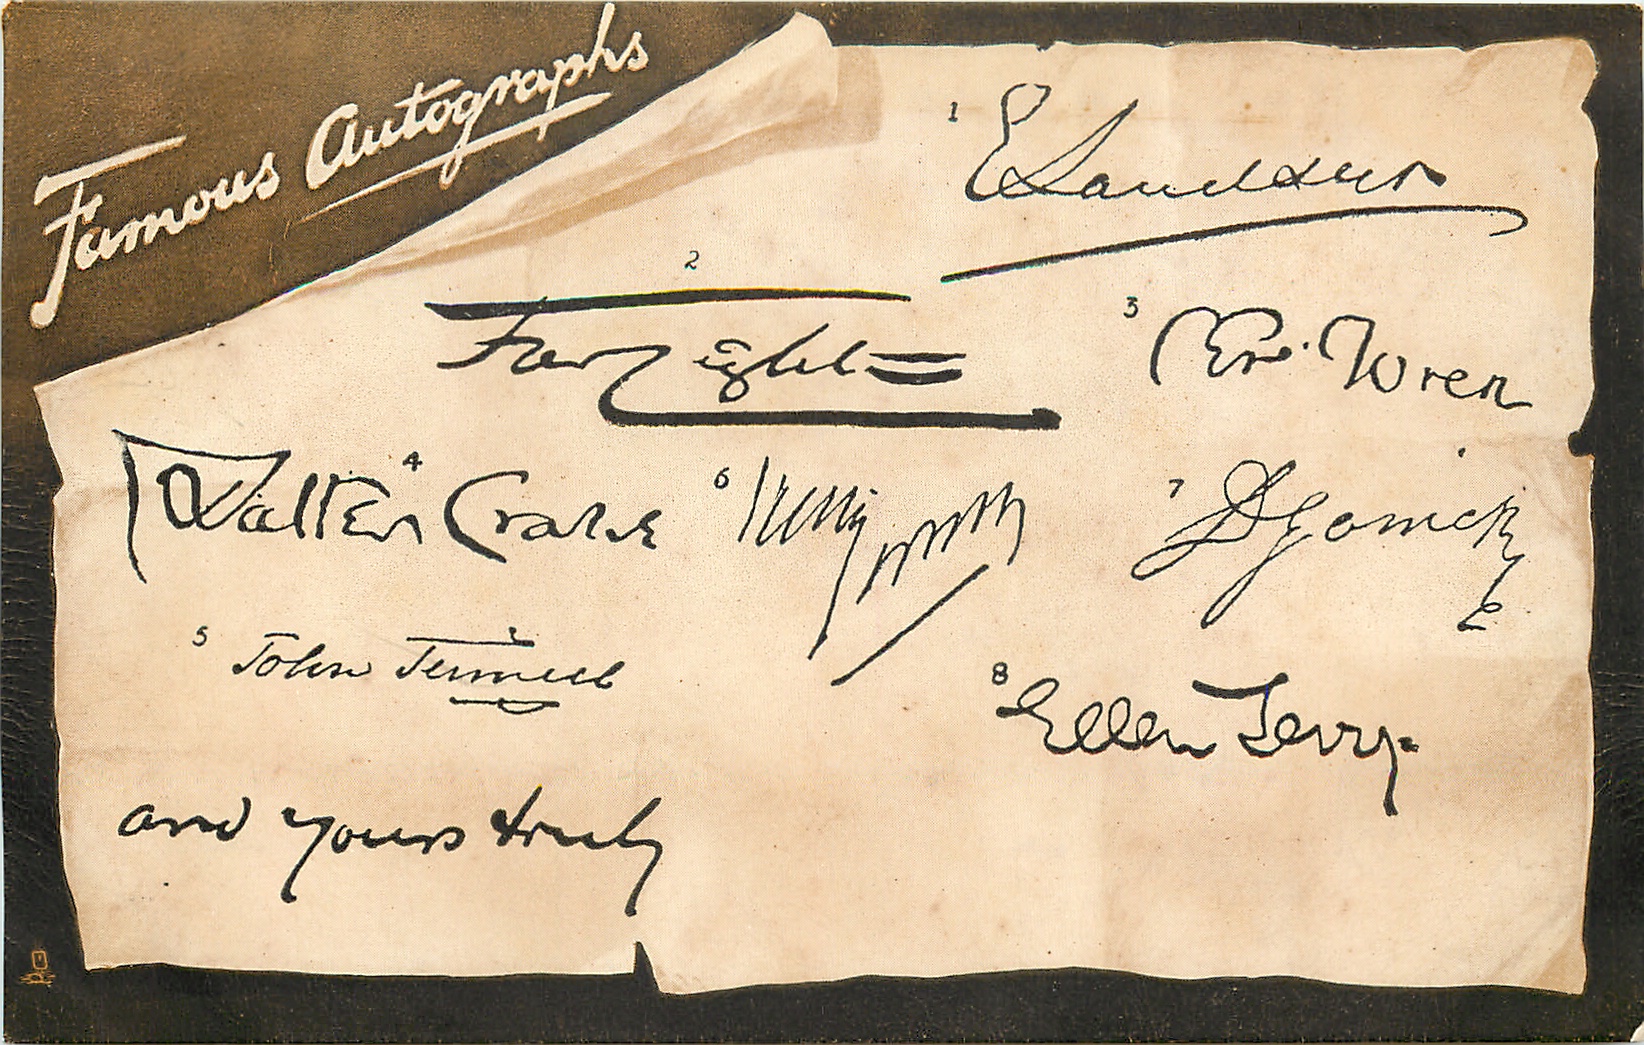 Famous Autographs
1
E Landseer
2
3
Chr. Wren
4
Walter Crane
6
7
D Garrick
5
John Tenniel
8
Ellen Terry
and yours truly